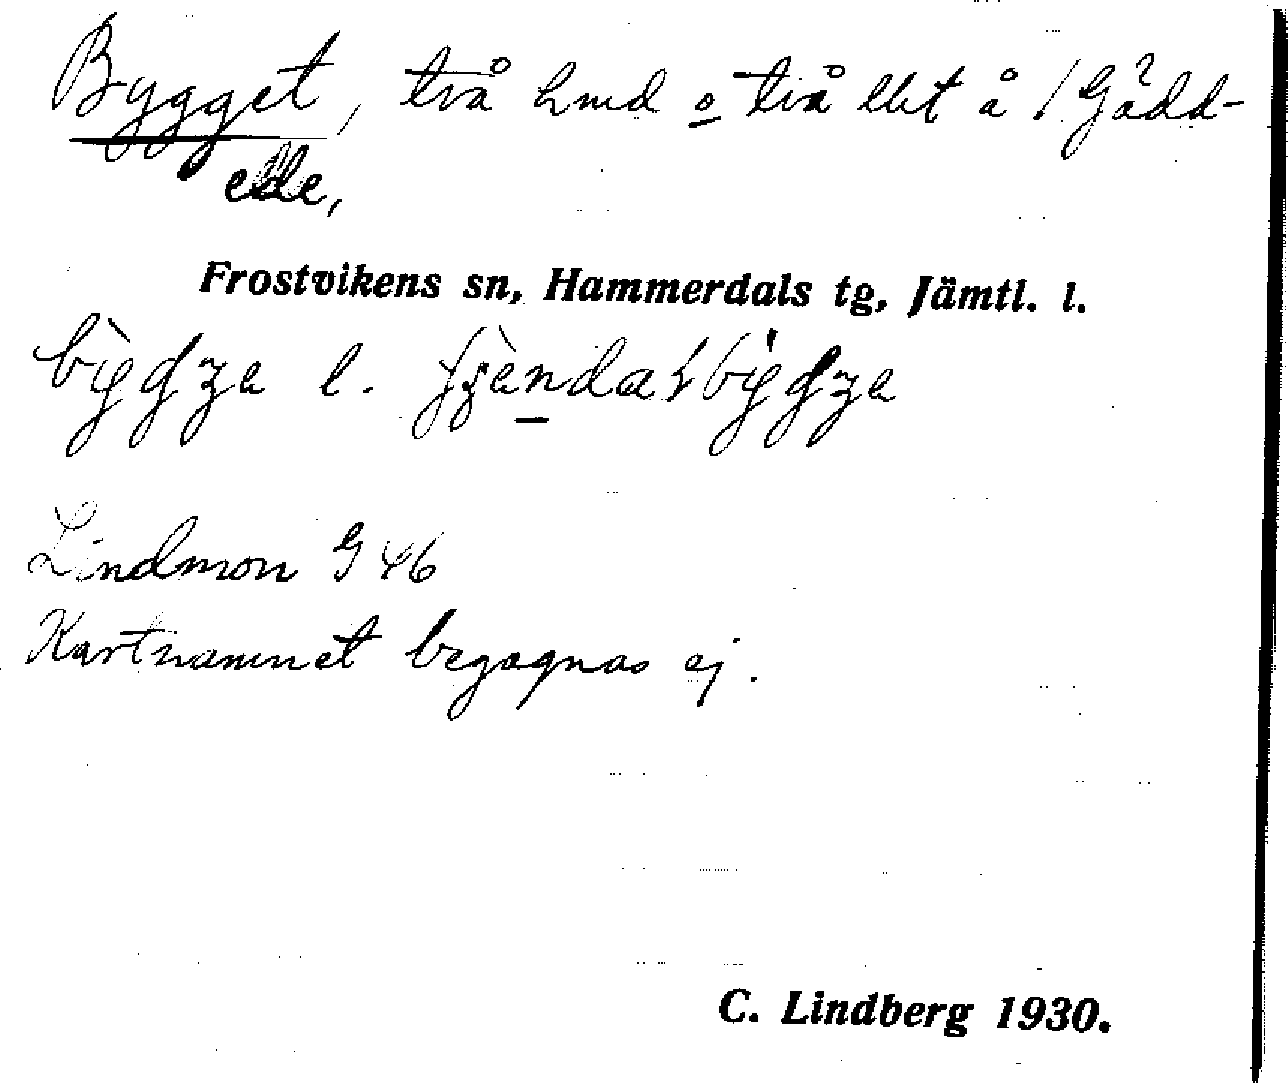 Bygget, två hmd o två lht å 1 Gädd-
ede,
Frostvikens sn, Hammerdals tg, Jämtl. l.
l.
Lindmon G 46
Kartnamnet begagnas ej.
C. Lindberg 1930.